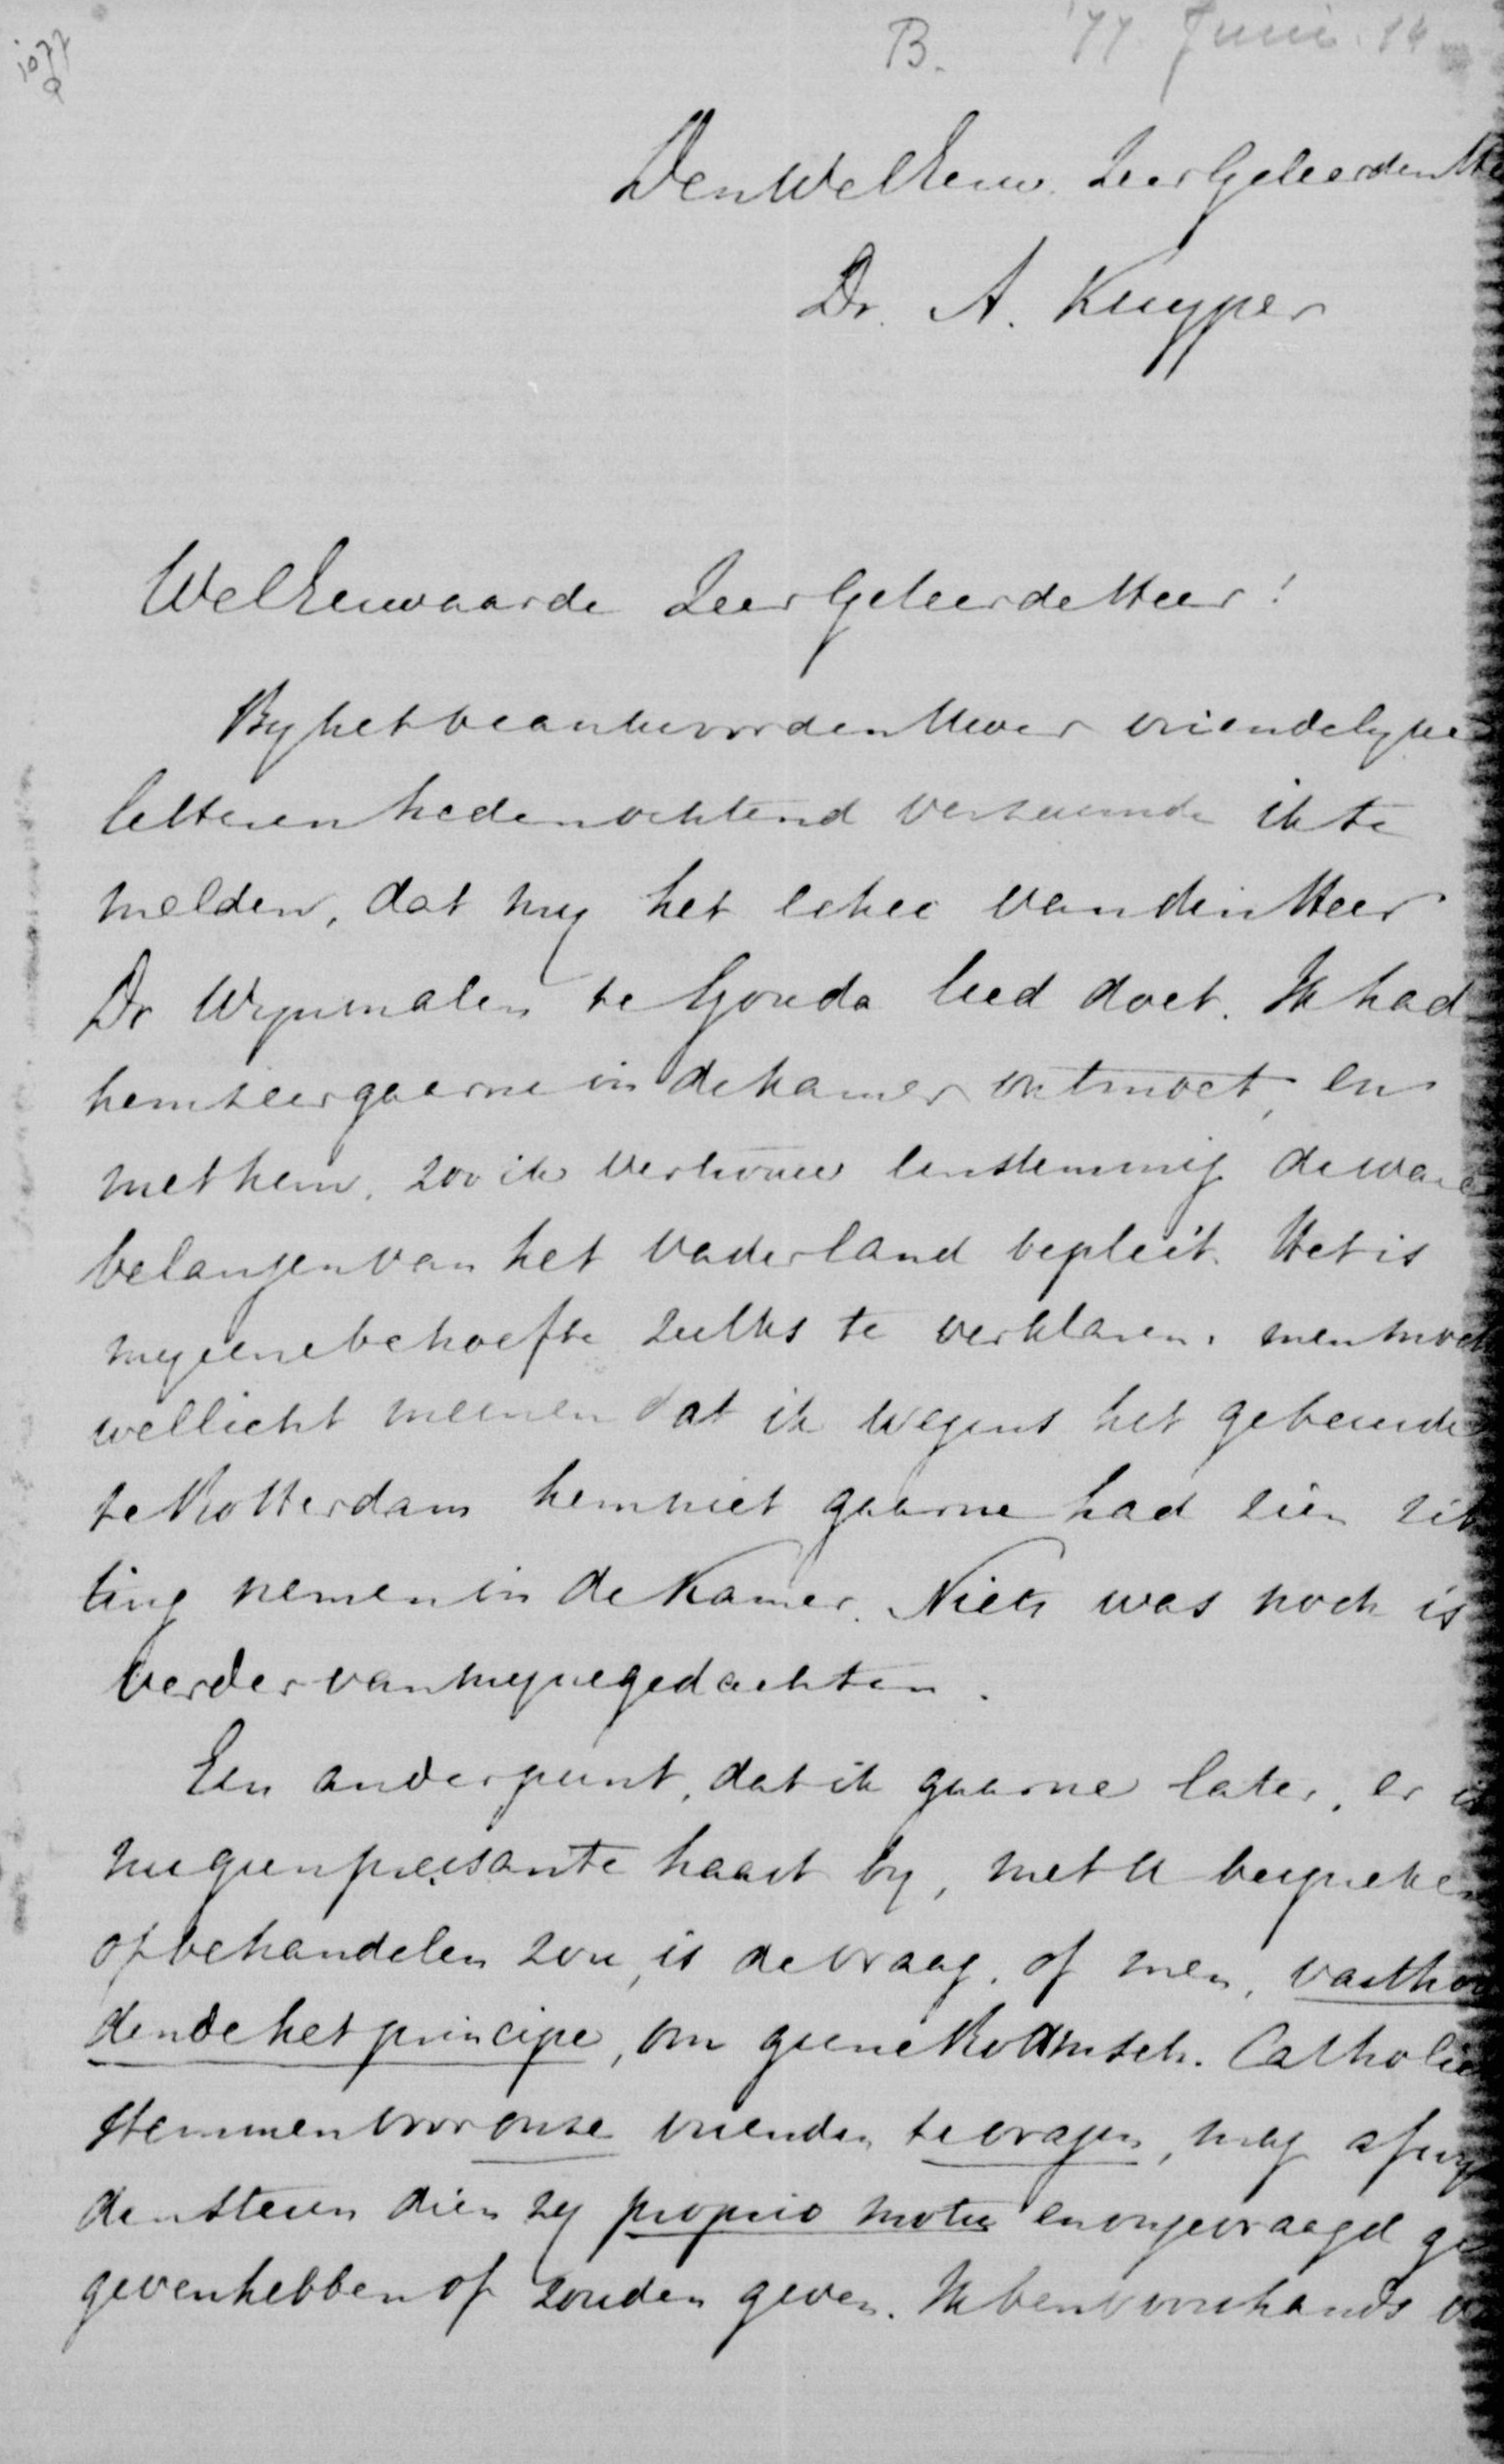 1077
B. '77 Juni 14
Den WelEerw. ZeerGeleerden
Dr. A. Kuyper
WelEerwaarde ZeerGeleerde Heer!
By het beantwoorden Uwer vriendelyke
letteren heden ochtend verzuimde ik te
melden, dat my het echec van den Heer
Dr Wynmalen te Gouda leed doet. Ik had
hem zeer gaarne in de kamer ontmoet, en
met hem, zoo ik vertrouw eenstemmig de ware
belangen van het vaderland bepleit. Het is
my eene behoefte zulks te verklaren. men mocht
wellicht meenen dat ik wegens het gebeurde
te Rotterdam hem niet gaarne had zien zit
ting nemen in de Kamer. Niets was noch is
verder van myne gedachten.
Een ander punt, dat ik gaarne later, er is
nu geen pressante haast by, met U bespreken
of behandelen zou, is de vraag, of men, vasthou
dende het principe, om geene Roomsch. Catholieke
stemmen voor onze vrienden te vragen, mag
den steun dien zy proprio motu en ongevraagd ge
geven hebben of zouden geven. Ik ben voorshands